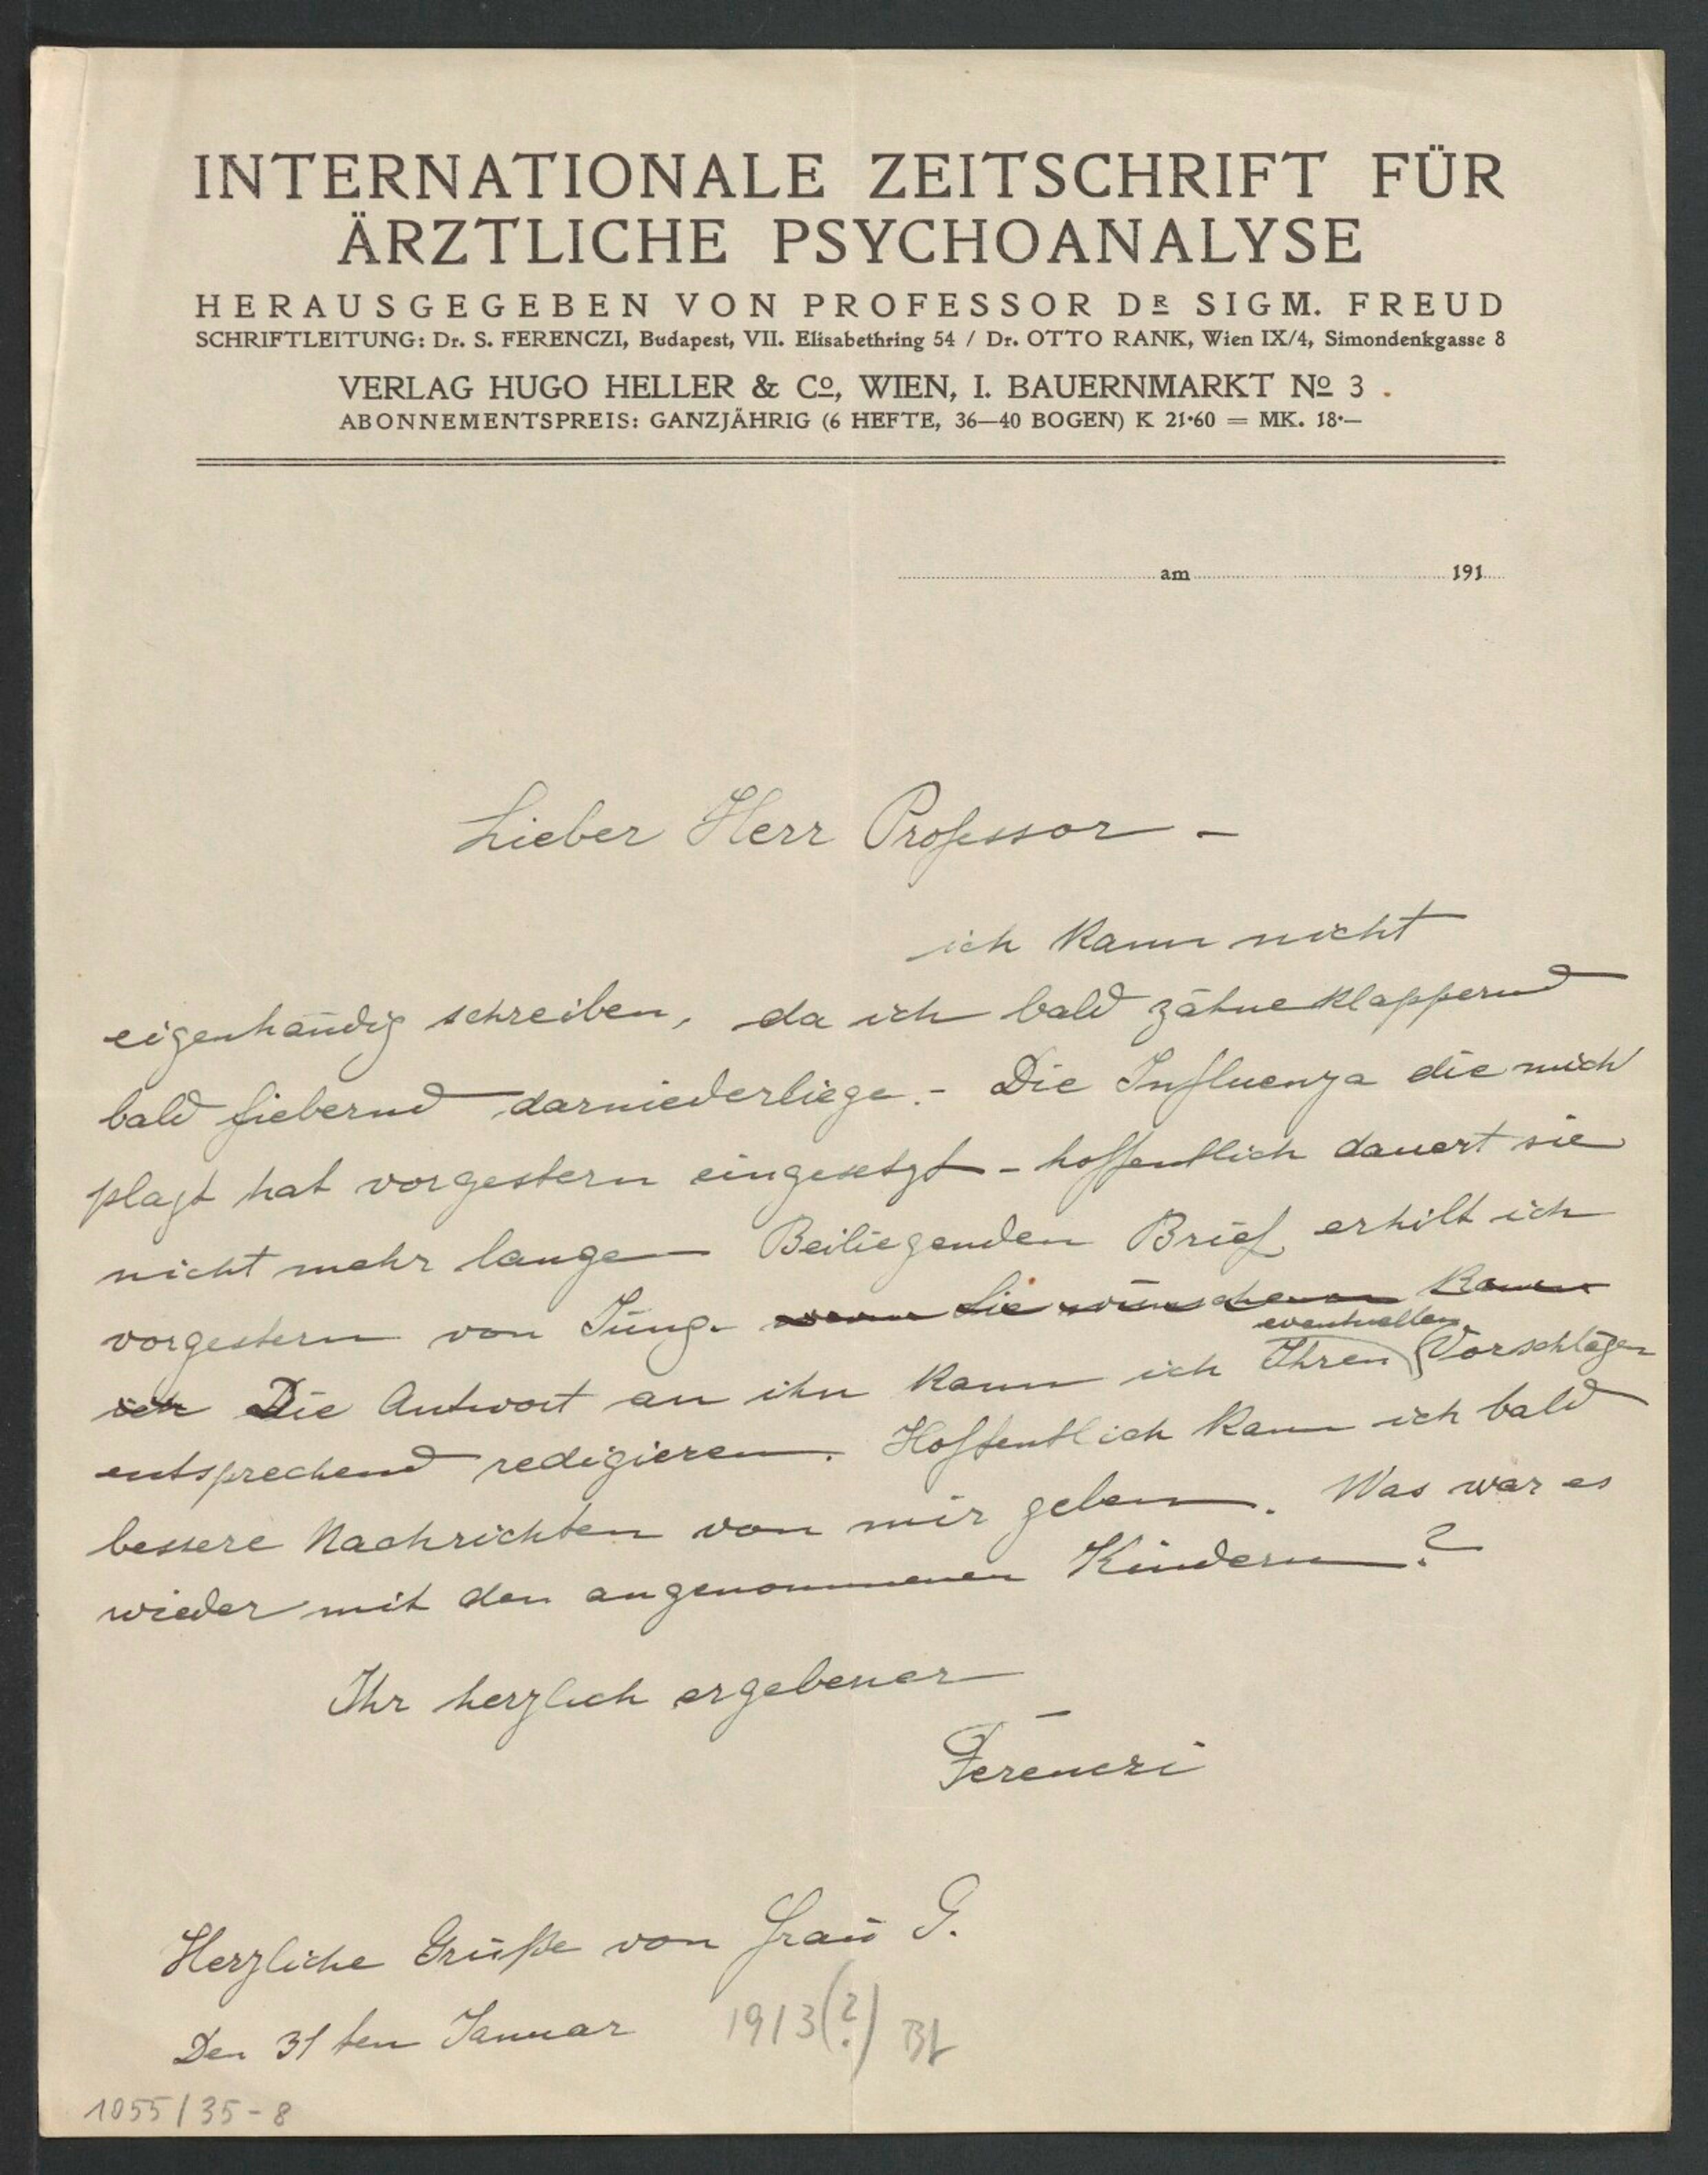 INTERNATIONALE ZEITSCHRIFT FÜR
ÄRZTLICHE PSYCHOANALYSE
HERAUSGEGEBEN VON PROFESSOR DR SIGM. FREUD
SCHRIFTLEITUNG: Dr. S. FERENCZI, Budapest, VII. Elisabethring 54 / Dr. OTTO RANK, Wien IX/4, Simondenkgasse 8
VERLAG HUGO HELLER & Co, WIEN, I. BAUERNMARKT No 3.
ABONNEMENTSPREIS: GANZJÄHRIG (6 HEFTE, 36—40 BOGEN) K 21·60 = MK. 18·—
am 191
Lieber Herr Professor –
ich kann nicht
eigenhändig schreiben, da ich bald zähneklappernd
bald fiebernd darniederliege. – Die Influenza die mich
plagt hat vorgestern eingesetzt – hoffentlich dauert sie
nicht mehr lange – Beiliegenden Brief erhilt ich
vorgestern von Jung. wenn Sie wünschen kann
eventuellen
ich Die Antwort an ihn kann ich Ihren Vorschlägen
entsprechend redigieren. Hoffentlich kann ich bald
bessere Nachrichten von mir geben. Was war es
wieder mit den angenommenen Kindern?
Ihr herzlich ergebener
Ferenczi
Herzliche Grüße von Frau G.
Den 31ten Januar 1913(?)
1055/35-8